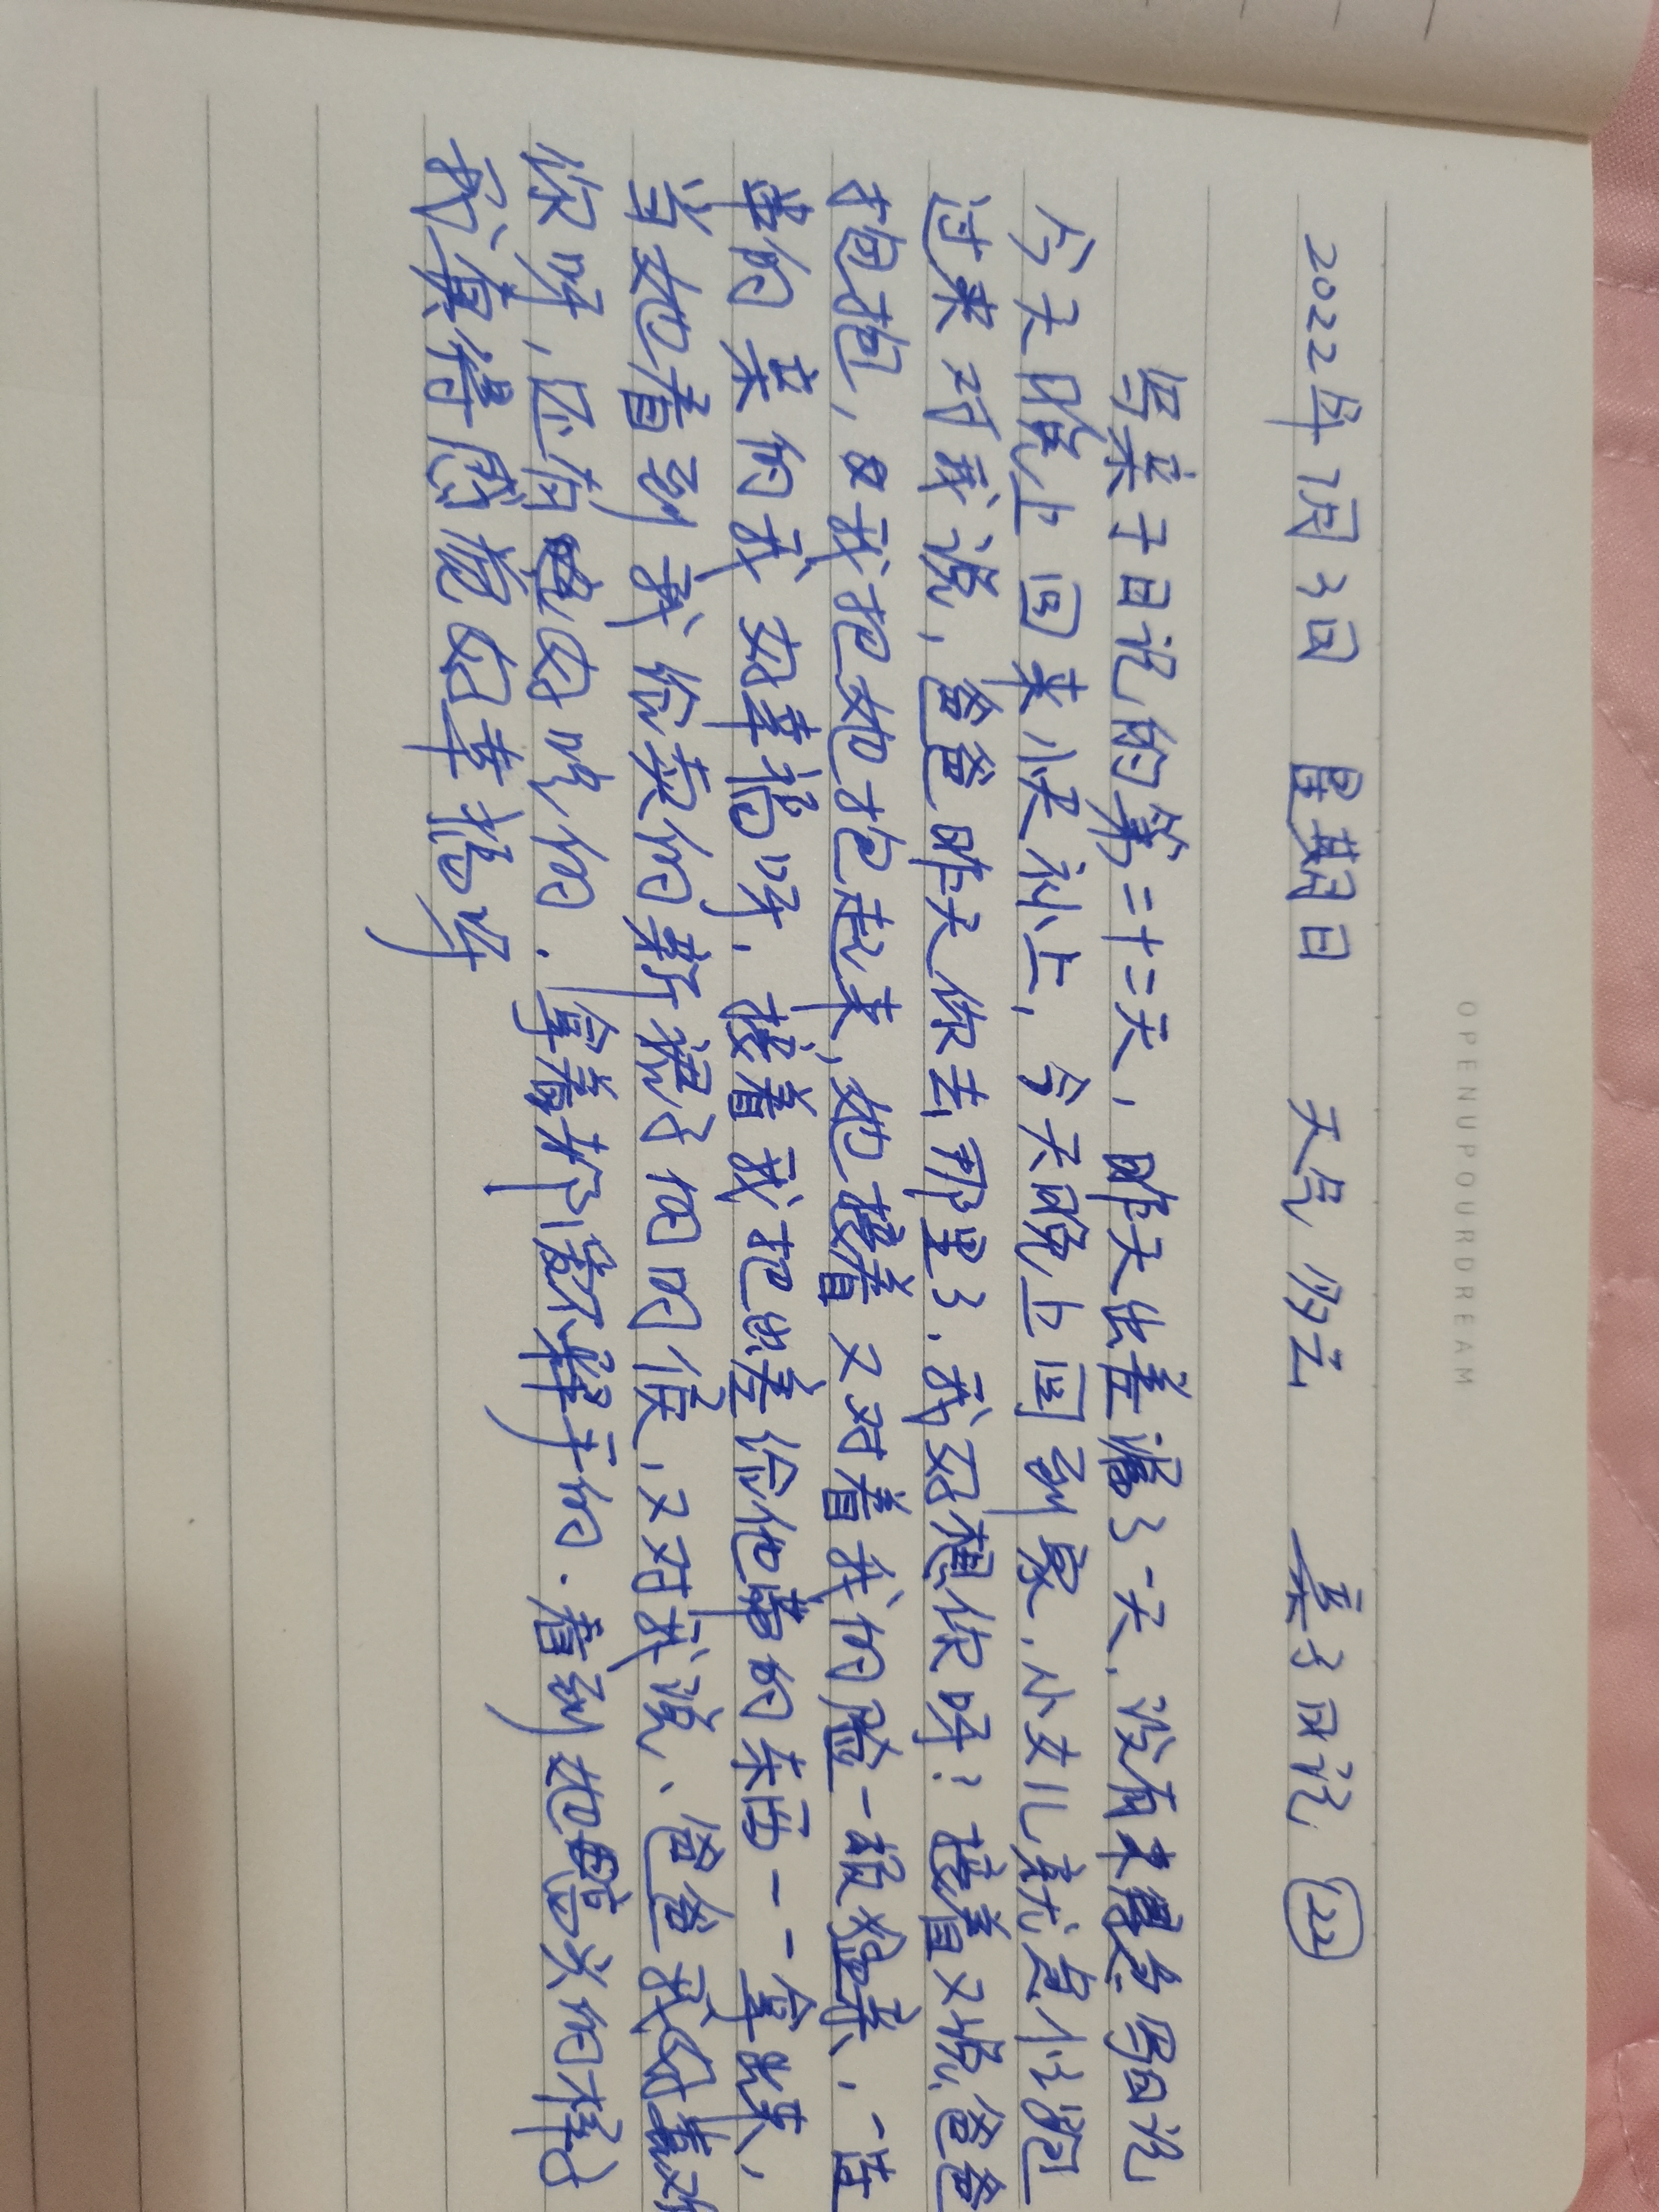 OPENUPOURDREAM
2022年7月3日 星期日 天气多云 亲子日记 22
写亲子日记的第二十二天，昨天出差漏了一天，没有来得急写日记
今天晚上回来小侠补上，今天晚上回到家，小女儿就急忙跑
过来对我说，爸爸昨天你去那里了．我好想你呀！接着又说，爸爸
抱抱，我把她抱起来，她搂着又对着我的脸一顿猛亲，一连
串的亲的我好幸福呀，接着我把出差给他拿的东西一一拿出来，
当她看到我给卖的新裙子的时候，又对我说、爸爸我好喜欢
你呀，还有吃的．拿着都爱不释手的．看到她的样子
我真得感觉好幸福呀